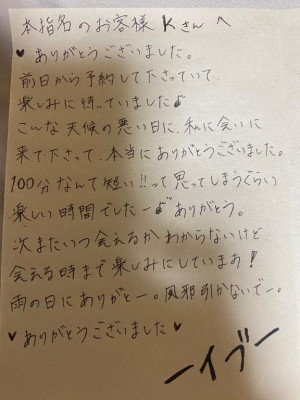 本指名のお客様 Kさんへ
♥ありがとうございました。
前日から予約して下さっていて、
楽しみに待っていました♪
こんな天候の悪い日に、私に会いに
来て下さって、本当にありがとうございました。
100分なんて短い!!って思ってしまうぐらい
楽しい時間でしたー♪ありがとう。
次またいつ会えるかわからないけど、
会える時まで楽しみにしていまあ!
雨の日にありがとー。風邪引かないでー。
♥ありがとうございました♥
ーイブー